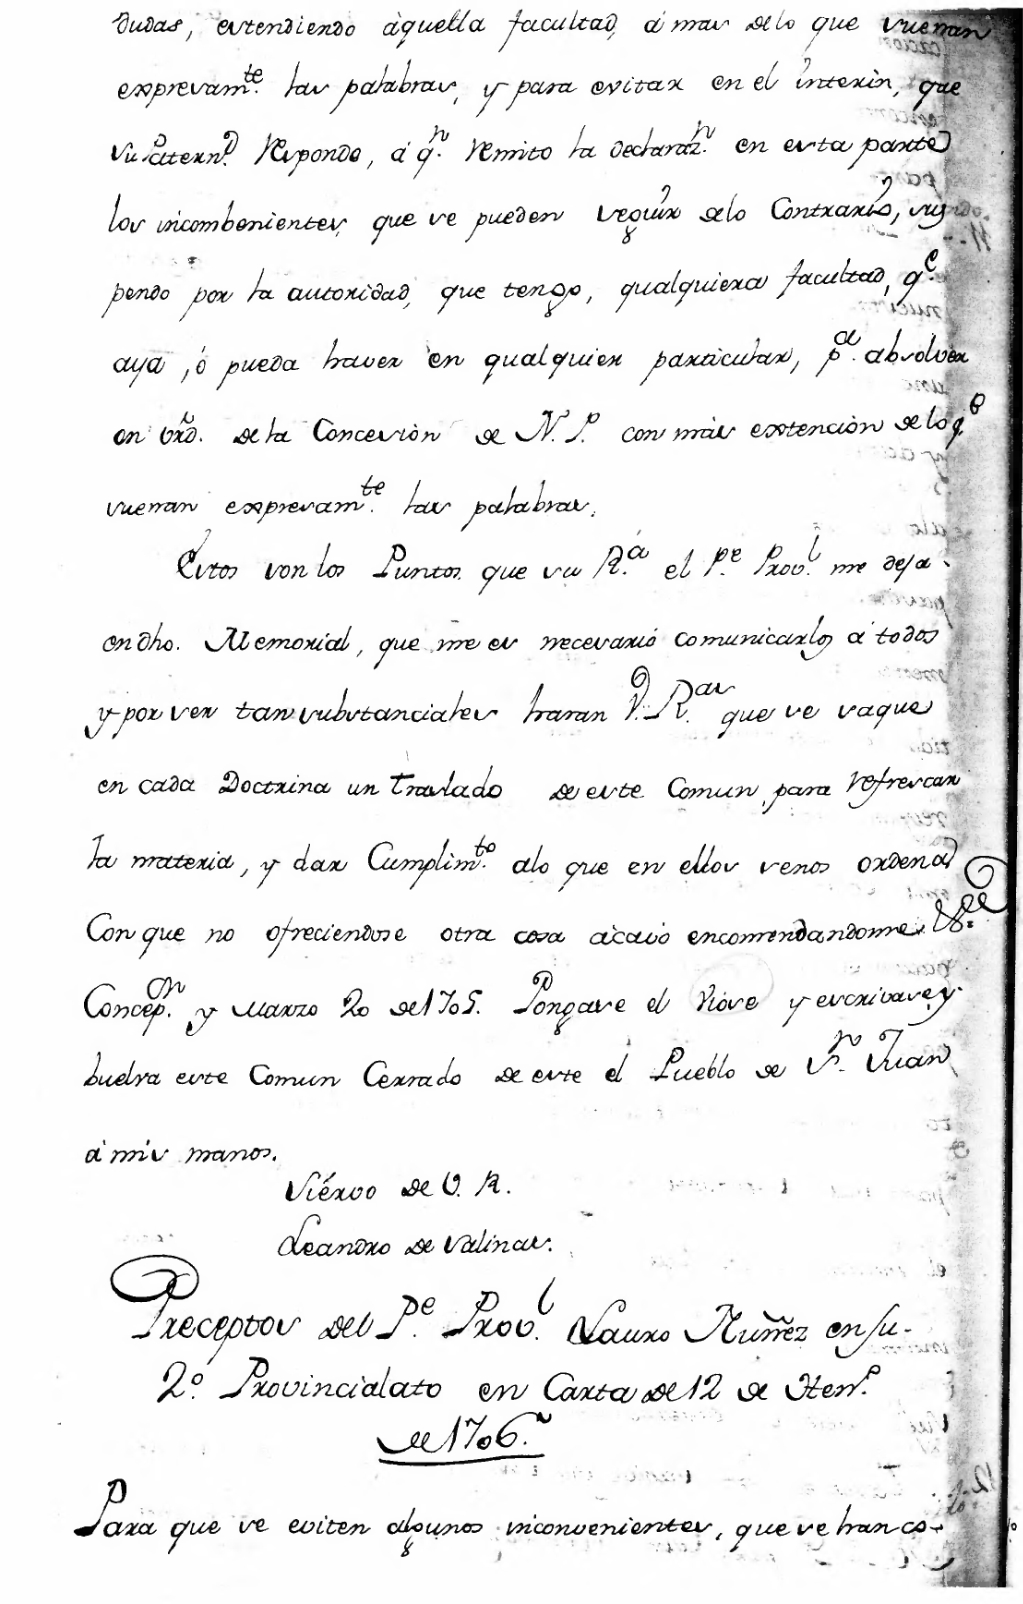 dudas, estendiendo àquella facultad, á mas de lo que suenan
expresam.te las palabras, y para evitar en el interin, que
su Patern.d responde, á q.n remito la declaraz.n en esta parte
los incombenientes, que se pueden seguir de lo Contrario, sus
pendo por la autoridad, que tengo, qualquiera facultad, q.e
aya, ó pueda haver en qualquier particular, p.a absolver
en vrd. de la Concesiòn de N. P. con màs extenciòn de lo q.e
suenan expresam.te las palabras.
Estos son los Puntos que su R.a el P.e Prov.l me deja
en dho. Memorial, que me es necesario comunicarlos á todos
y por ser tan substanciales haran V. R.as que se saque
en cada Doctrina un Traslado de este Comun para refrescar
la materia, y dar Cumplim.to alo que en ellos senos ordena
Con que no ofreciendose otra cosa acavo encomendandome &.
Concep.n y Marzo 20 de 1705. Pongase el Vióse y escrivase, y
buelva este Comun Cerrado de este el Pueblo de S.n Juan
á mis manos.
Siérvo de V. R.
Leandro de Salinas.
Preceptos del P.e Prov.l Lauro Nuñez en su
2.o Provincialato en Carta de 12 de Hen.o
de 1706.
Para que se eviten algunos inconvenientes, que se han co-